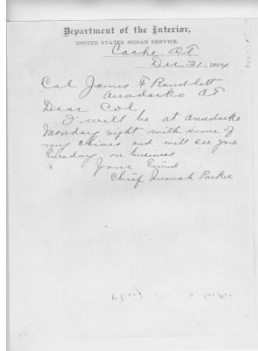 Department of the Interior,
UNITED STATES INDIAN SERVICE.
Cache O T
Dec 31, 1904
Col James F Randlett
Anadarko O T
Dear Col,
I will be at Anadarko
Monday night with some of
my chiefs and will see you
Tuesday on business
Your Friend
Chief Quanah Parker